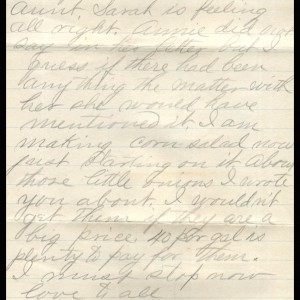 Aunt Sarah is feeling
all right. Annie did not
say in her letter but I
guess if there had been
anything the matter with
her she would have
mentioned it. I am
making corn salad now
just starting on it. About
those little onions I wrote
you about. I wouldn't
get them if they are a
big price. 40 per gal is
plenty to pay for them.
I must stop now
love to all